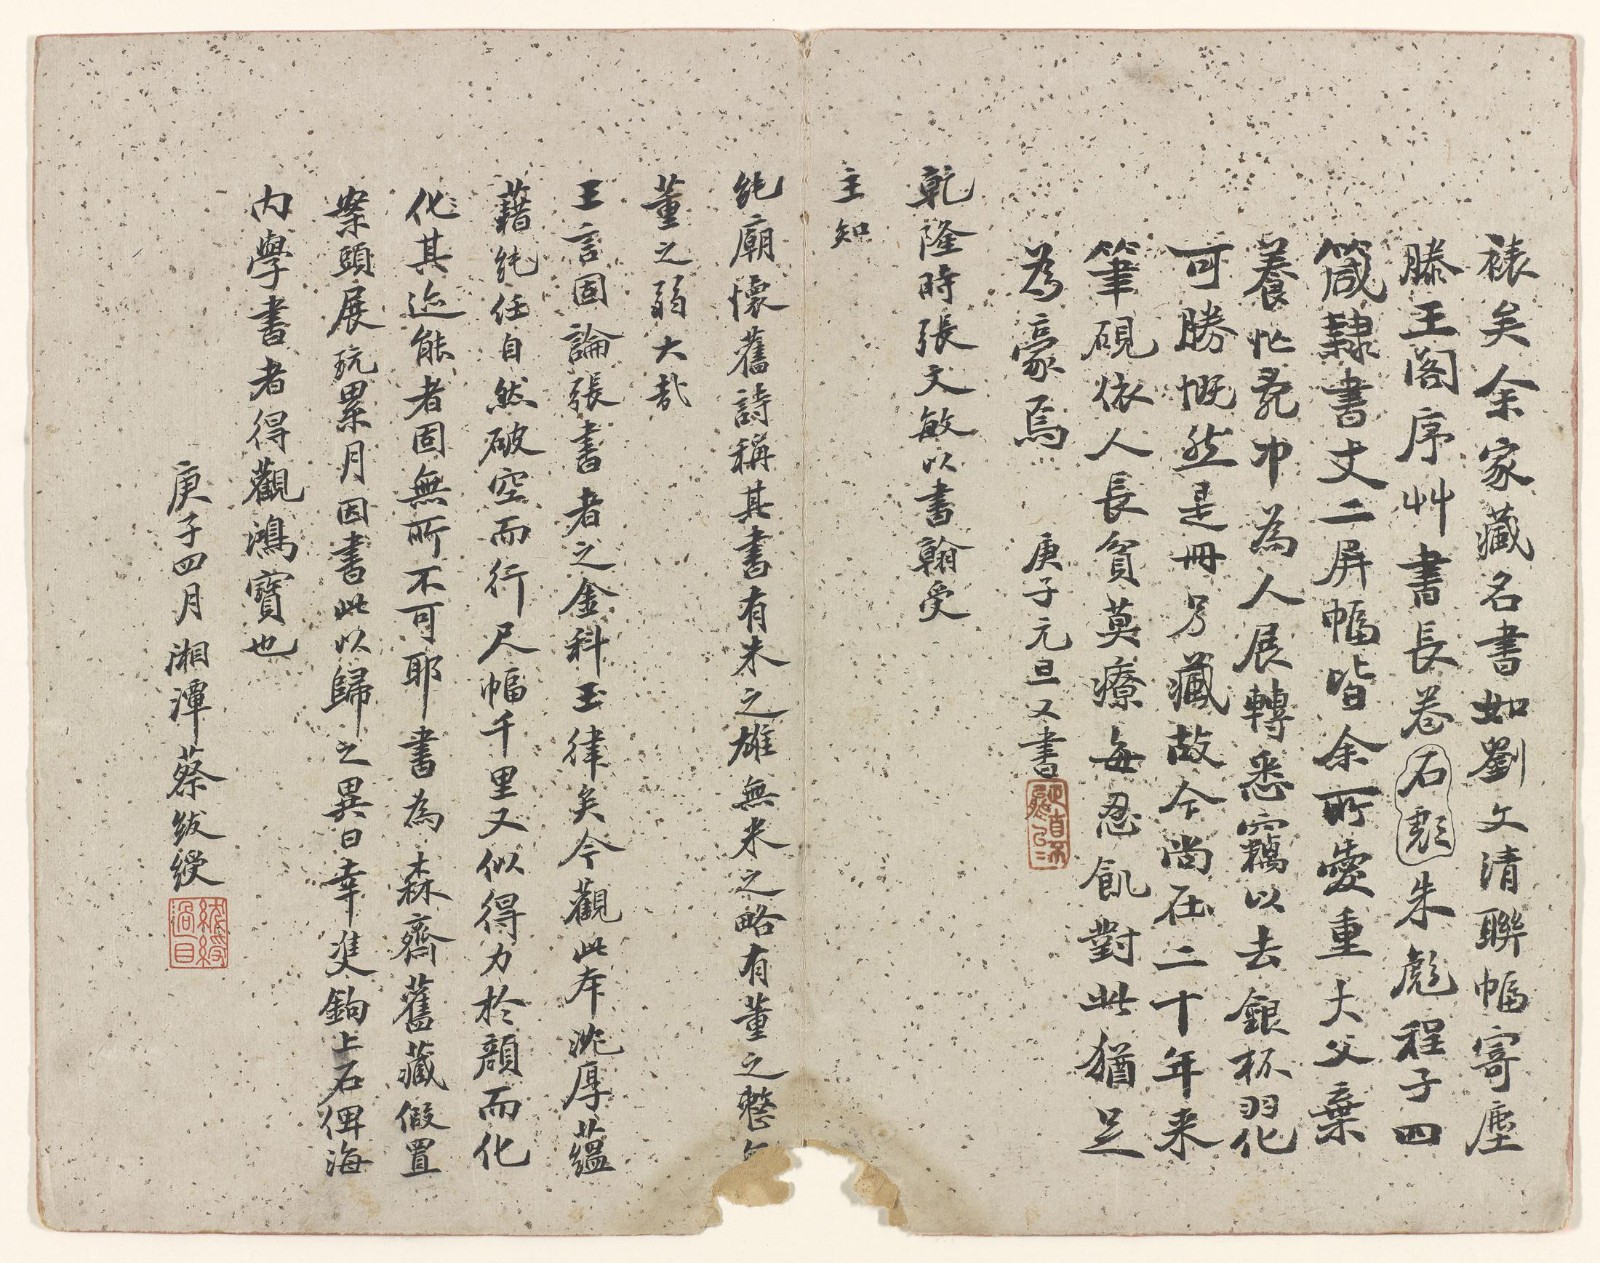 裱矣余家藏名書如劉文清聯幅寄塵
滕王閣序艸書長卷石刻朱彪程子四
箴隸書丈二屏幅皆余所愛重大父棄
養忙亂中為人展轉悉竊以去銀杯羽化
可勝慨然是冊另藏故今尚在二十年來
筆硯依人長貧莫療每忍飢對此猶足
為豪焉 庚子元旦又書
乾隆時張文敏以書翰受
主知
純廟懷舊詩稱其書有米之雄無米之略有董之整
董之弱大哉
王言固論張書者之金科玉律矣今觀此本沈厚蘊
藉純任自然破空而行尺幅千里又似得力於顏而化
化其迹能者固無所不可耶書為森齋舊藏假置
案頭展玩累月因書此以歸之異日幸雙鉤上石俾海
內學書者得觀鴻寶也
庚子四月湘潭蔡紱綬
紱綬過目